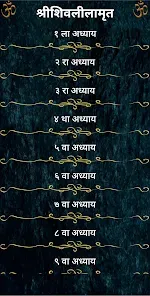 श्रीशिवलीलामृत
१ ला अध्याय
२ रा अध्याय
३ रा अध्याय
४ था अध्याय
५ वा अध्याय
६ वा अध्याय
७ वा अध्याय
८ वा अध्याय
९ वा अध्याय